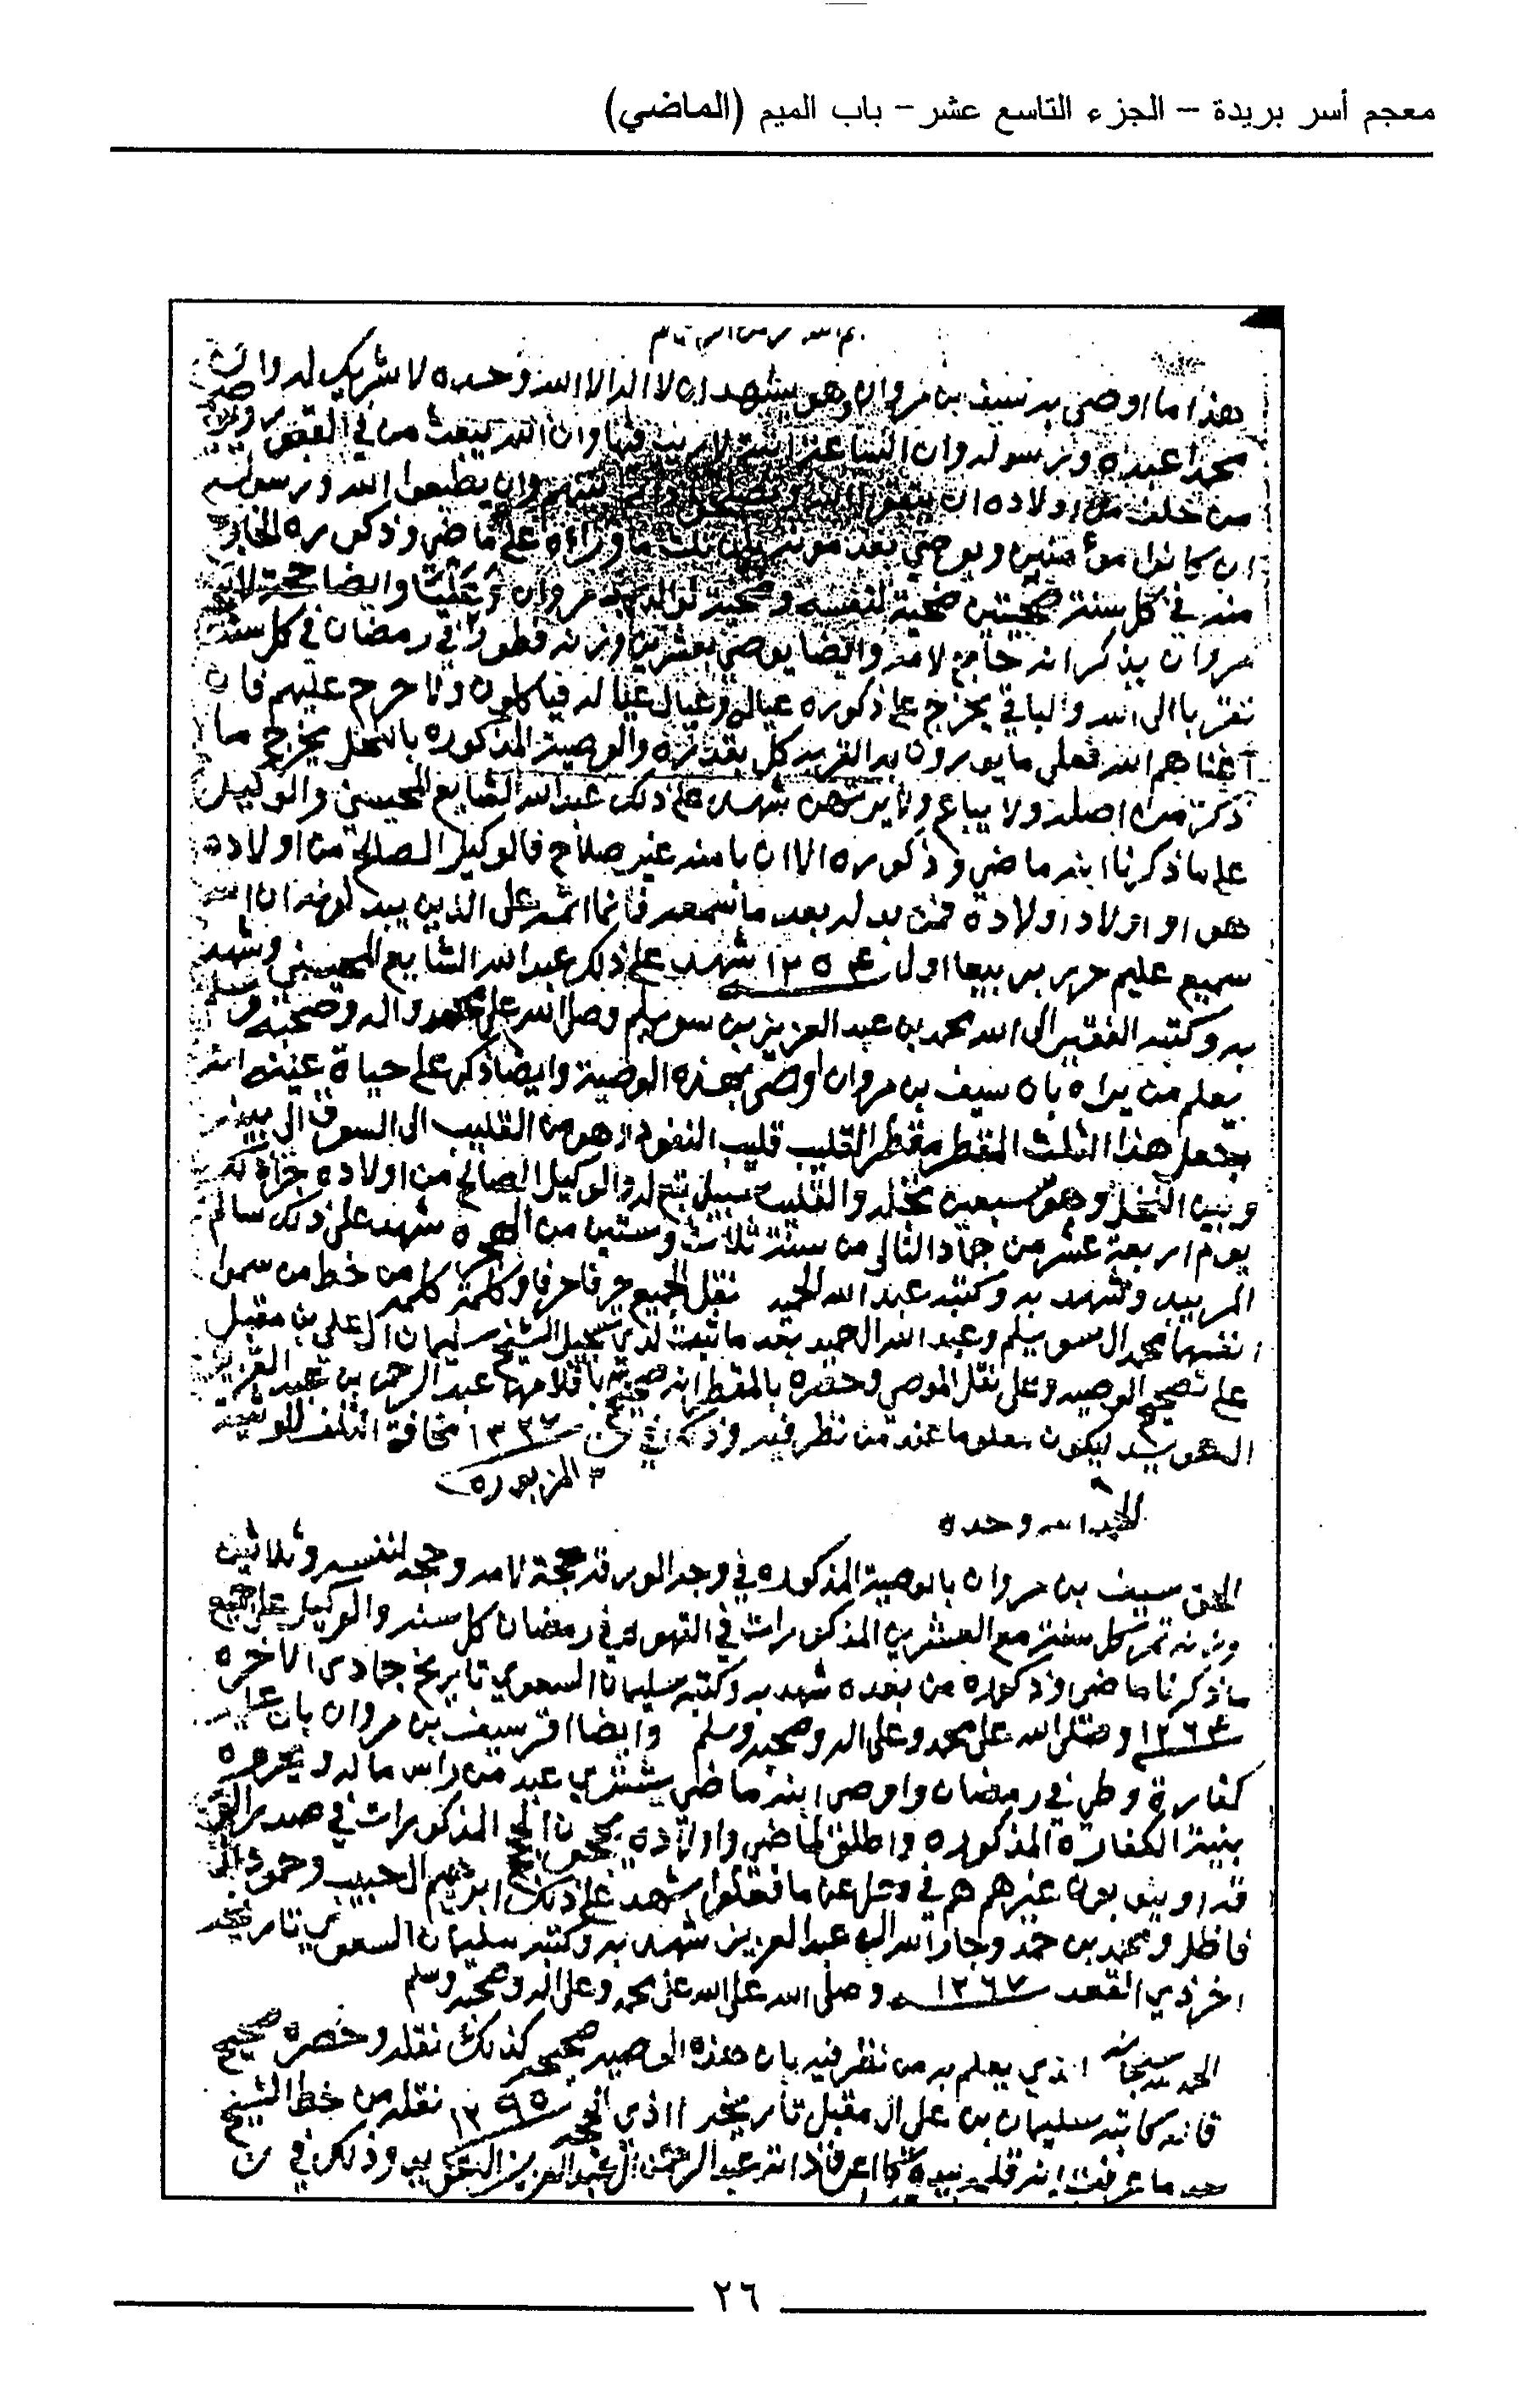 معجم أسر بريدة – الجزء التاسع عشر – باب الميم (الماضي)
هذا ما اوصى به سيف بن مروان وهو يشهد ان لا اله الا الله وحده لا شريك له وان
محمدا عبده ورسوله وان الساعة اتية لا ريب فيها وان الله يبعث من في القبور
من خلف من اولاده ان يتقوا الله ويصلحوا ذات بينهم وان يطيعوا الله ورسوله
ان كانوا مؤمنين ويوصي بعد موته بثلث ما وراءه على ماضي وذكوره
منه في كل سنة ضحيتين ضحية لنفسه وضحية لوالديه مروان وايضا حجة
مروان يذكر انه حاج لامه وايضا يوصي بعشرين وزنة فطور في رمضان في كل سنة
تقربا الى الله والباقي يخرج على ذكوره عياله وعيال عياله فياكلون ولا حرج عليهم فان
اغناهم الله فعلى ما يورون به القريه كل بقدره والوصية المذكوره بالنخل يخرج ما
ذكر من اصله ولا يباع ولا يرتهن شهد على ذلك عبدالله الشايع المحيسني والوكيل
على ما ذكرنا ابنه ماضي وذكوره الا ان بامنه غير صلاح فالوكيل الصالح من اولاده
هو او اولاد اولاده فمن بدله بعد ما سمعه فانما اثمه على الذين يبدلونه ان الله
سميع عليم حرر ربيعا اول ١٢٥٤ شهد على ذلك عبدالله الشايع المحيسني وشهد
به وكتبه الفقير الى الله محمد بن عبدالعزيز بن سويلم وصلى الله على محمد واله وصحبه وسلم
يعلم من يراه بان سيف بن مروان اوصى بهذه الوصية وايضا ذكر على حياة عينه انه
جعل هذا الثلث المقطر مقطر القليب قليب النفود هو من القليب الى السوق الى بينه
وبين النخل وهو سبعين نخله والقليب سبيل تبع له والوكيل الصالح من اولاده
يوم اربعة عشر من جماد الثاني من سنة ثلاث وستين من الهجرة شهد على ذلك سالم
المربيد وشهد به وكتبه عبدالله الحميد نقل الجميع حرفا حرفا وكلمة كلمه من خط من سموا
انفسهما محمد ال سويلم وعبدالله الحميد بعد ما ثبت لدي تسجيل الشيخ سليمان ال علي بن مقبل
على تصحيح الوصيه وعلى نقل الموصي وحضره بالمقطر انه صحيح باقلامهما عبدالرحمن بن عبدالعزيز
العويد ليكون معلوما عند من نظر فيه وذلك في ١٣٢٧ مخافة التلف للوصية
المزبوره
الحمد لله وحده
الحق سيف بن مروان بالوصية المذكوره في وجه الورقه حجة لامه وحجه لنفسه وثلاثين
وزنه تمر كل سنة مع العشرين المذكورات في القهوه في رمضان كل سنه والوكيل على جميع
ما ذكرنا ماضي وذكوره من بعده شهد به وكتبه سليمان السعوي تاريخ جمادى الاخره
١٢٦٤ وصلى الله على محمد وعلى اله وصحبه وسلم وايضا اقر سيف بن مروان بان عليه
كفارة وطي في رمضان واوصى ابنه ماضي يشتري عبد من راس ماله ويحرره
بنية الكفاره المذكوره واطلق لماضي واولاده يحجون الحج المذكورات في صدر الورقه
قه او ينوبون غيرهم هم في حل عن ما فعلوا شهد على ذلك ابراهيم الحبيب وحمود ال
فاضل ومحمد بن حمد وجارالله ال عبدالعزيز شهد به وكتبه سليمان السعوي تاريخه
اخر ذي القعد ١٢٦٧ وصلى الله على الله على محمد وعلى اله وصحبه وسلم
الحمد لله سبحانه الذي يعلم به من نظر فيه بان هذه الوصيه صحيحه كذلك نقله وحضره صحيح
قاله كاتبه سليمان بن علي ال مقبل تاريخه ١١ ذي الحجه ١٢٩٥ نقله من خط الشيخ
بعد ما عرفت انه قلم بيده كما اعرف ذاته عبدالرحمن ال عبدالعزيز وذلك في
٢٦